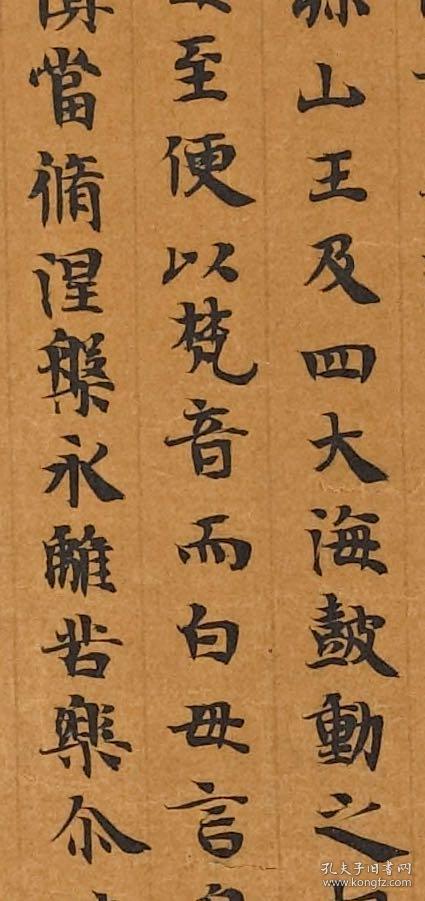 山王及四大海鼓動之
至便以梵音而白母言
當脩涅槃永離苦樂尒
孔夫子旧书网
www.kongfz.com